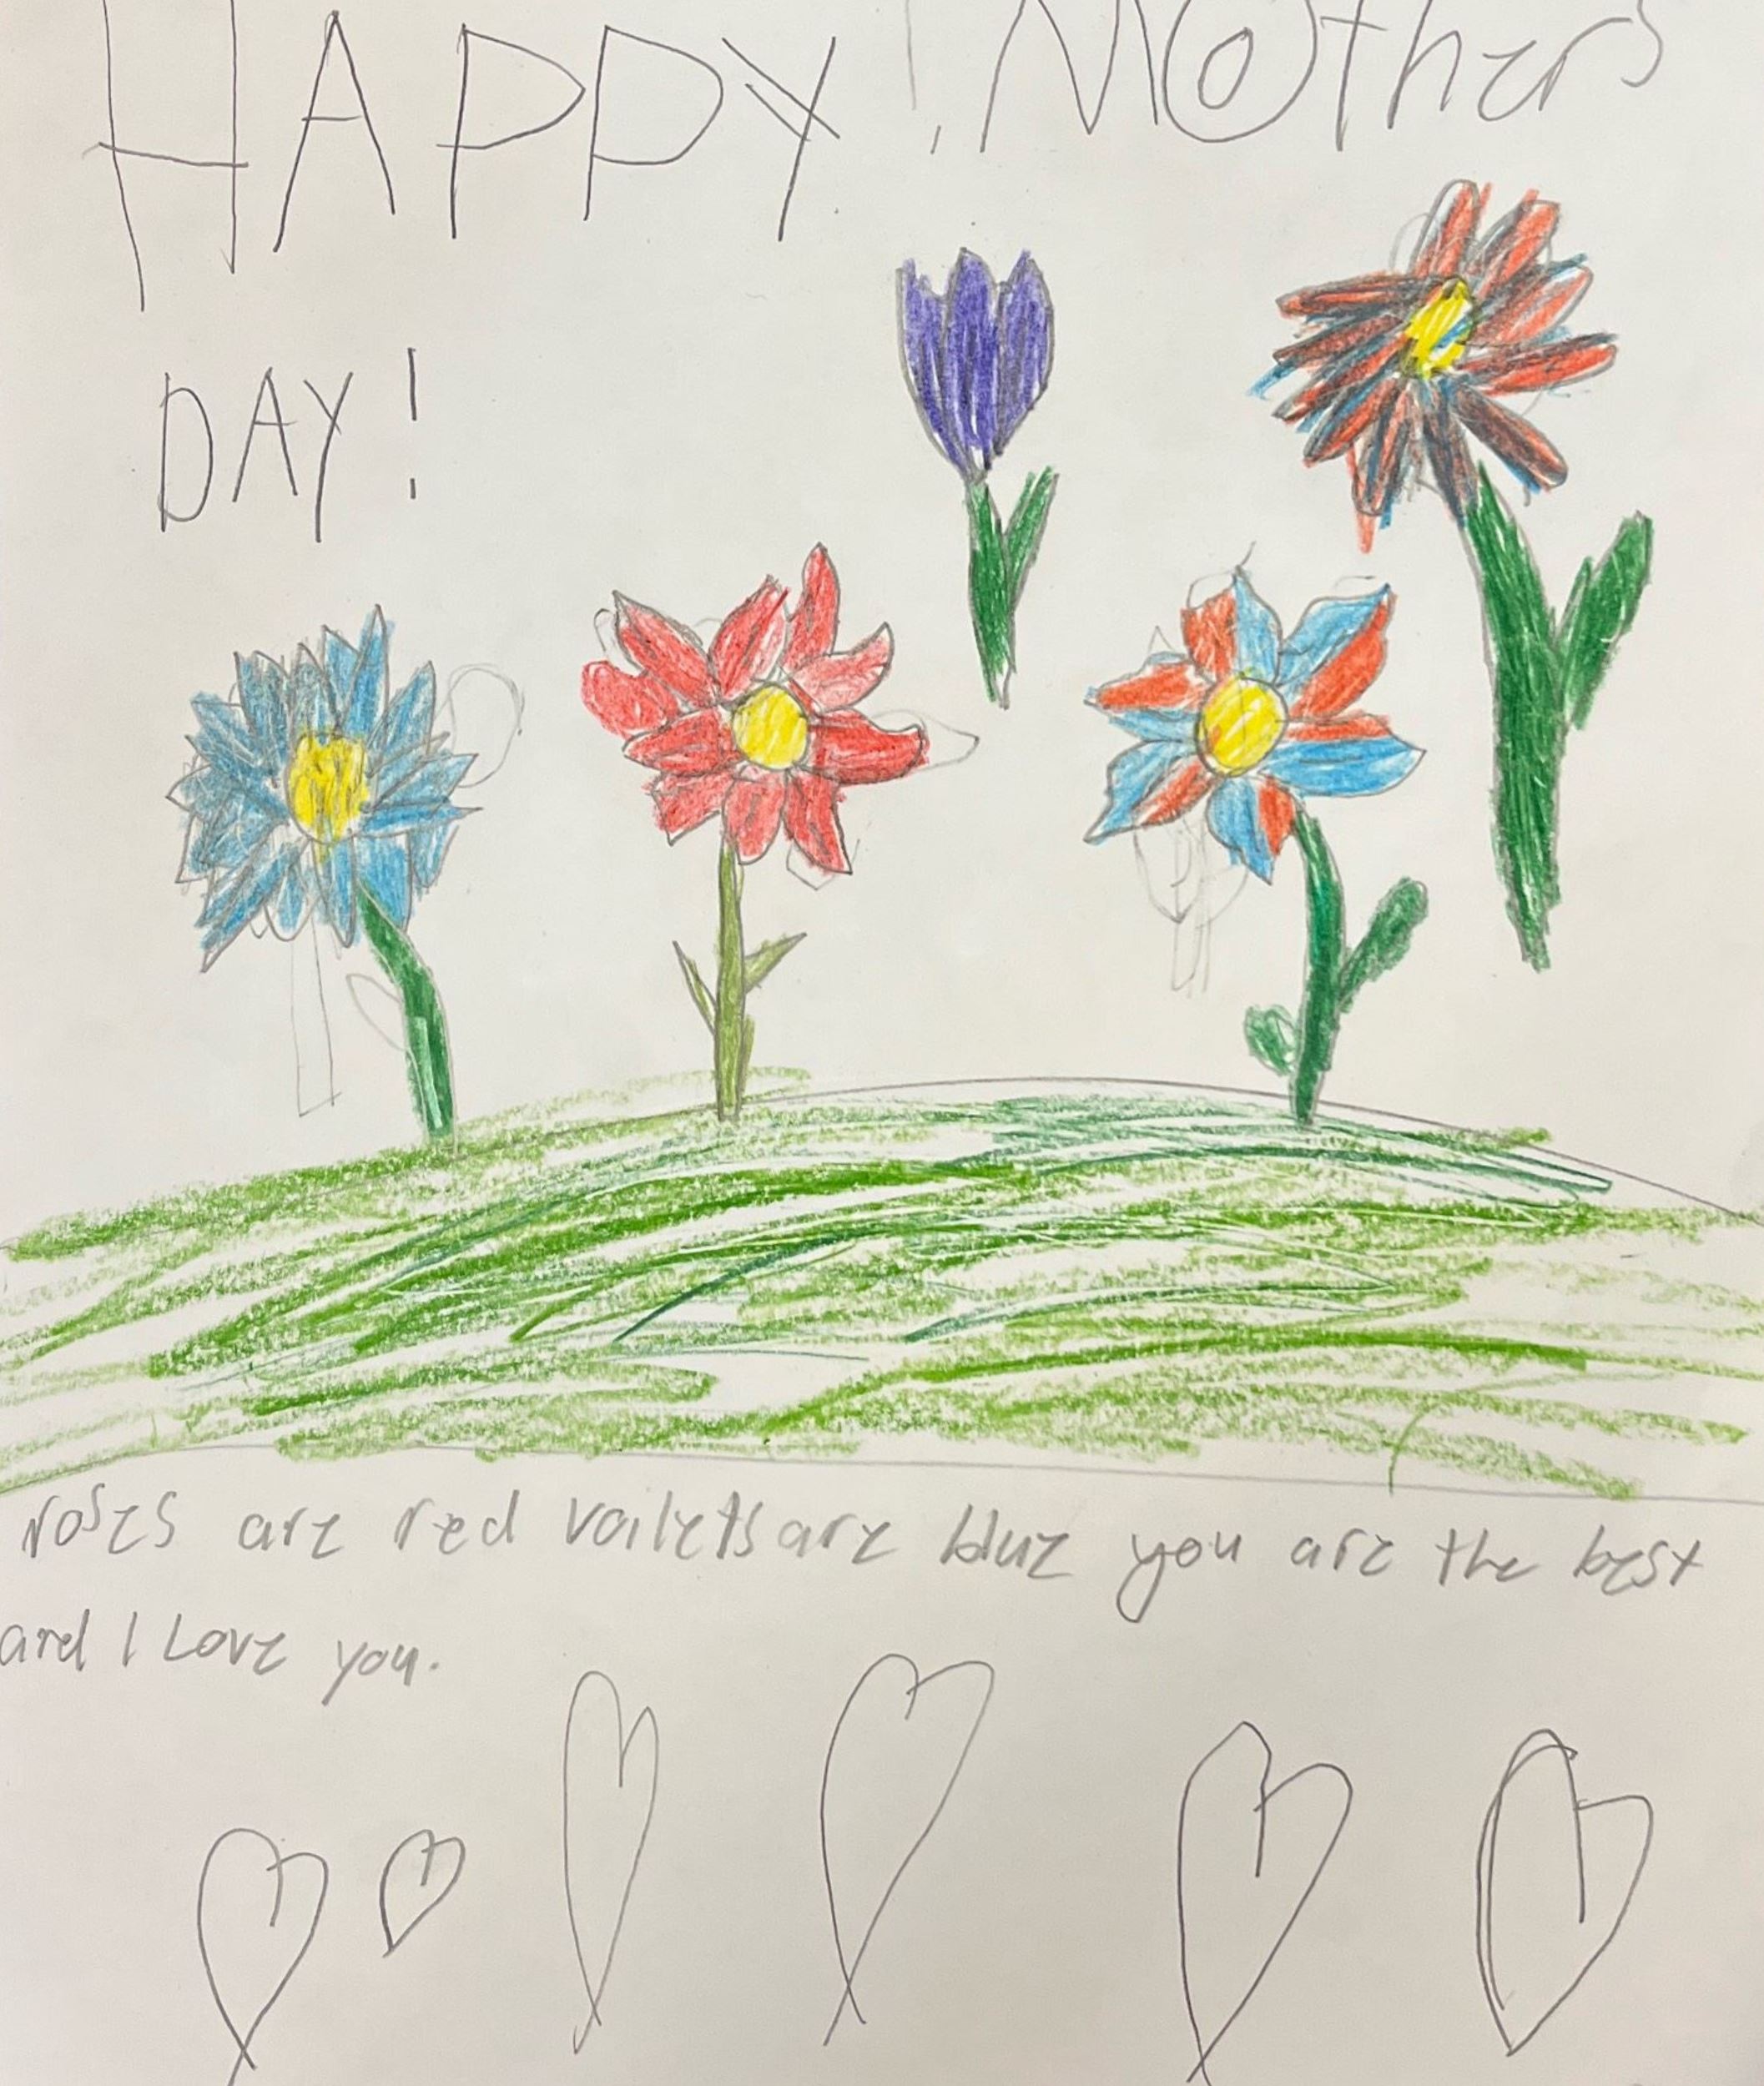 HAPPY ! MOthers
DAY!
roses are red voilets are blue you are the best
and I Love you.